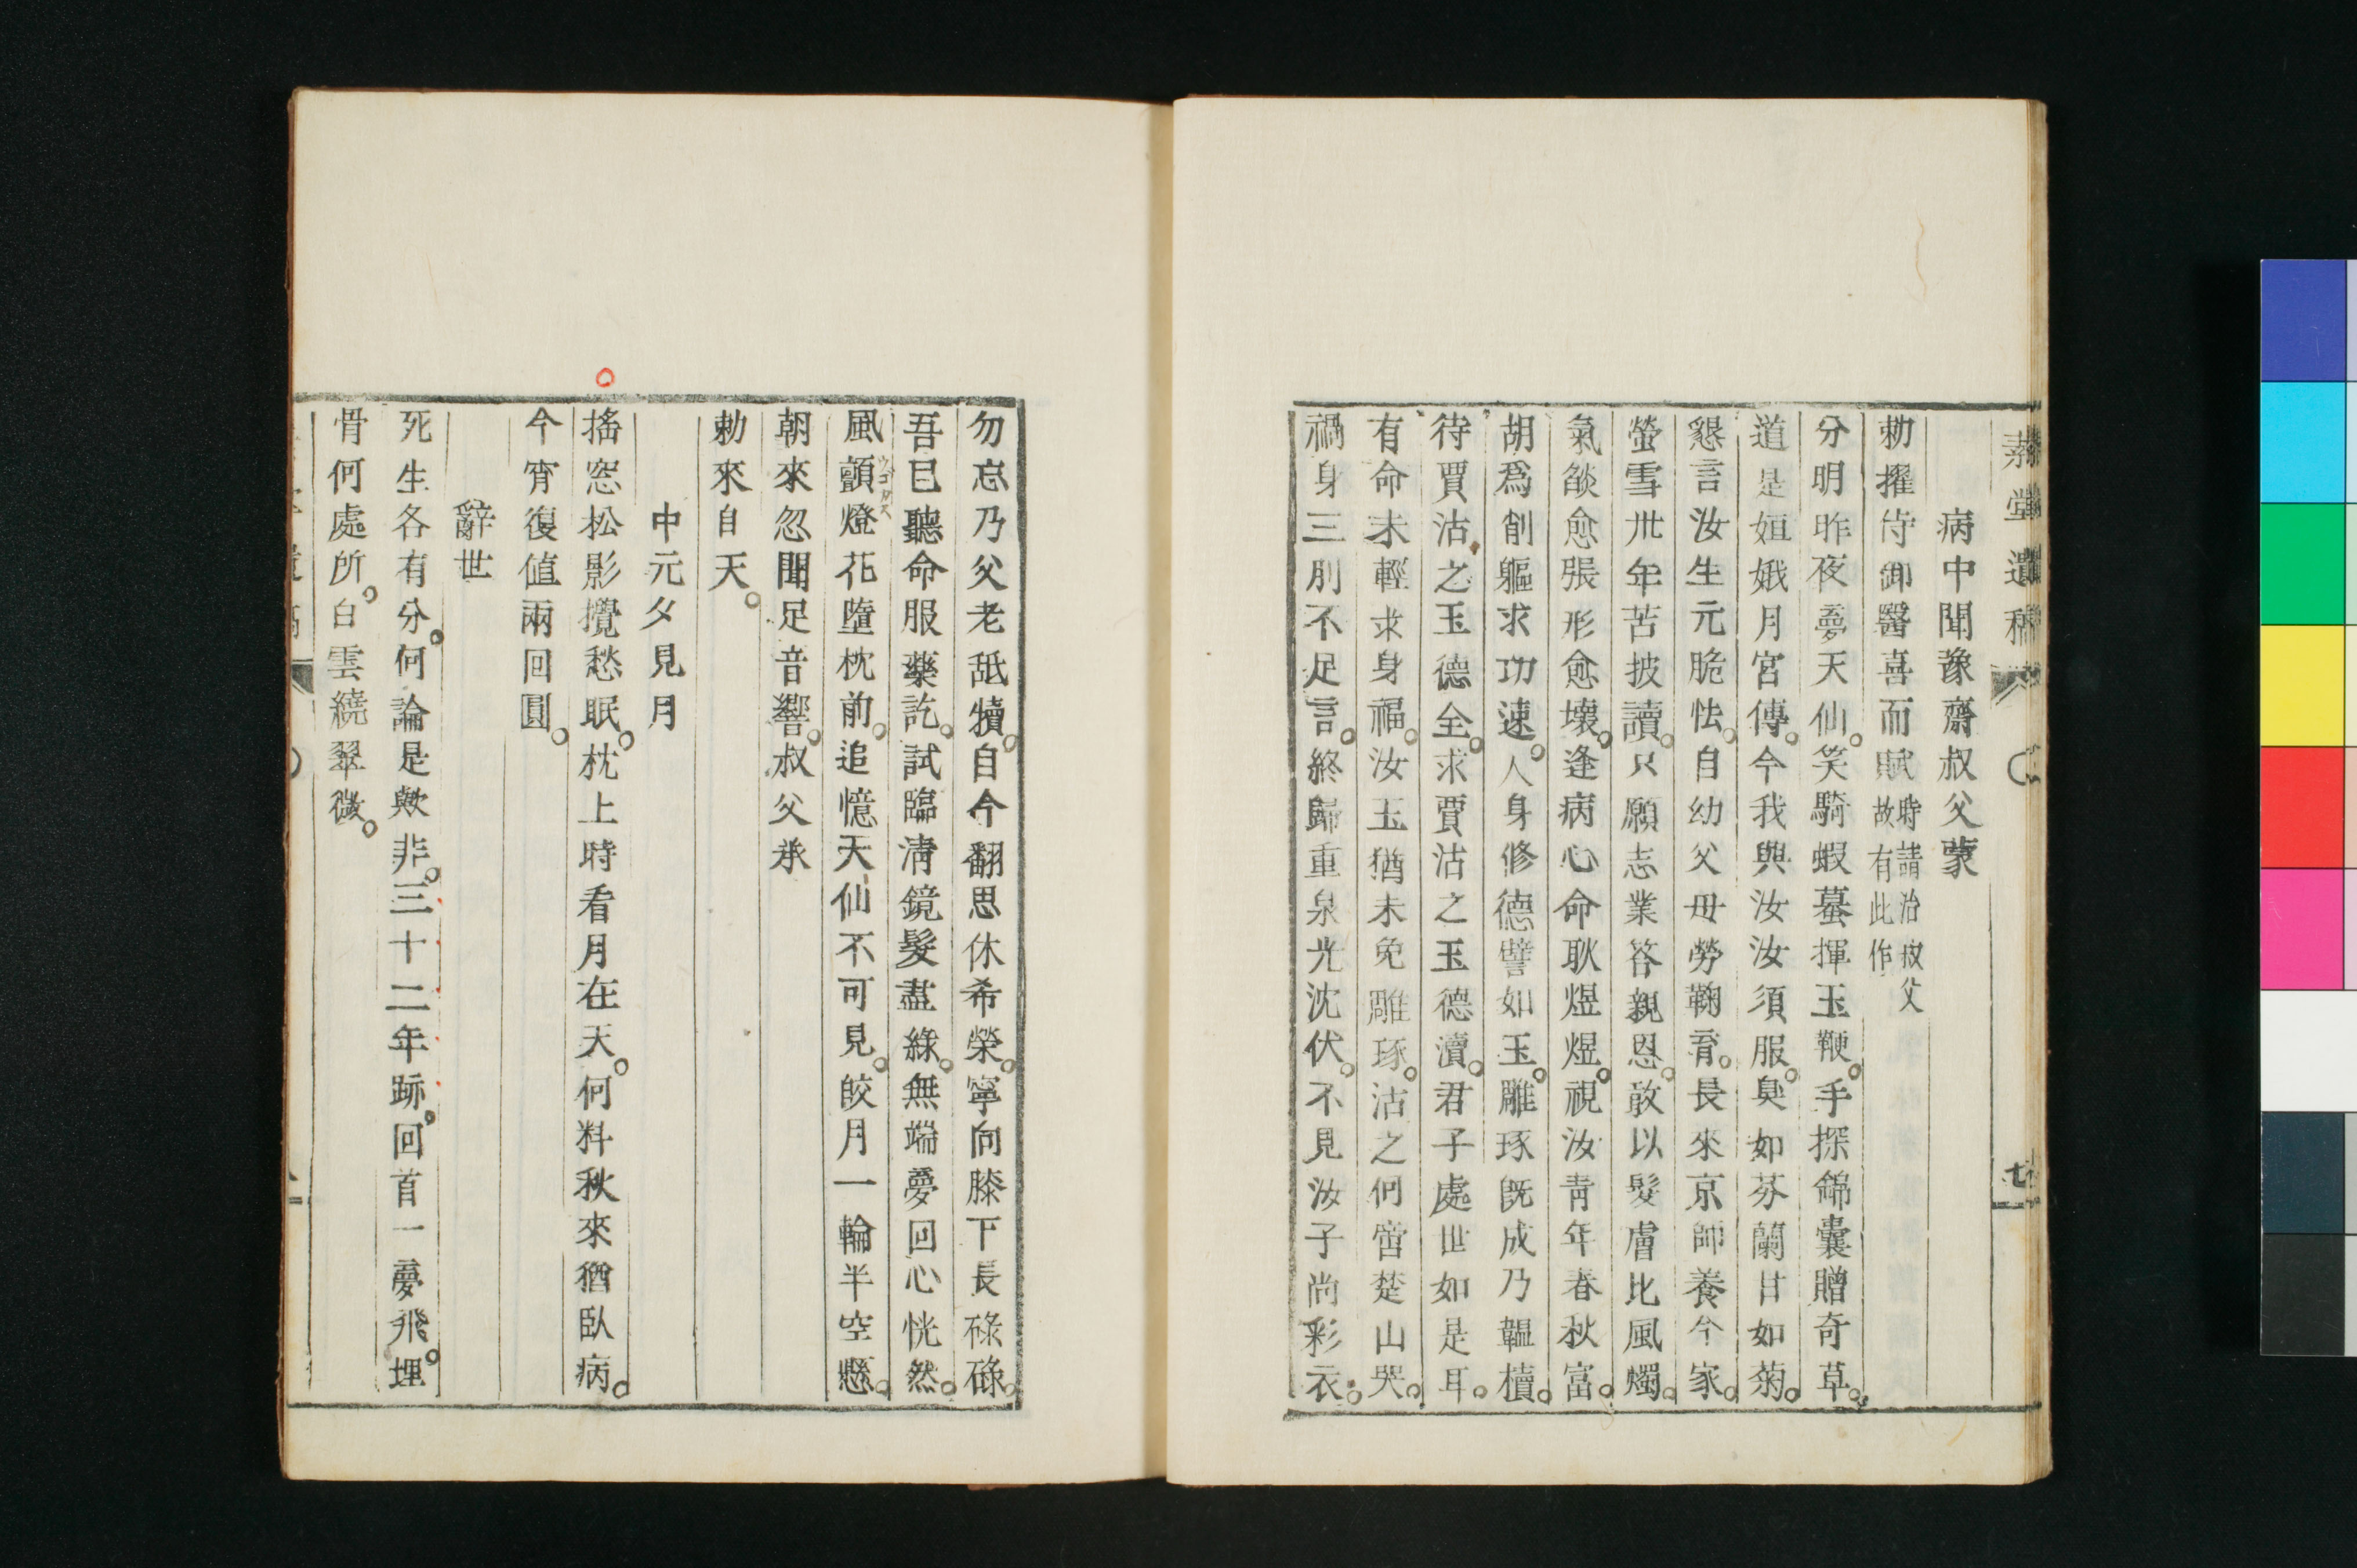 素堂遺稿
七
病中聞豫齋叔父蒙
勅擢侍御醫喜而賦時請治叔父
故有此作
分明昨夜夢天仙。笑騎蝦蟇揮玉鞭。手探錦囊贈奇草。
道是姮娥月宮傳。今我與汝汝須服。臭如芬蘭甘如菊。
懇言汝生元脆怯。自幼父母勞鞠育。長來京師養今家。
螢雪卅年苦披讀。只願志業答親恩。敢以髮膚比風燭。
氣燄愈張形愈壞。逢病心命耿煜煜。視汝青年春秋富。
胡爲削軀求功速。人身修德譬如玉。雕琢旣成乃韞櫝。
待賈沽之玉德全。求賈沽之玉德瀆。君子處世如是耳。
有命未輕求身福。汝玉猶未免雕琢。沽之何啻楚山哭。
禍身三刖不足言。終歸重泉光沈伏。不見汝子尚彩衣。
勿忘乃父老舐犢。自今翻思休希榮。寧向膝下長碌碌。
吾已聽命服藥訖。試臨淸鏡髮盡綠。無端夢回心恍然。
風顫ウゴカス燈花墮枕前。追憶天仙不可見。皎月一輪半空懸。
朝來忽聞足音響。叔父承
勅來自天。
中元夕見月
搖窓松影攪愁眠。枕上時看月在天。何料秋來猶臥病。
今宵復値兩回圓。
辭世
死生各有分。何論是歟非。三十二年跡。回首一夢飛。埋
骨何處所。白雲繞翠微。